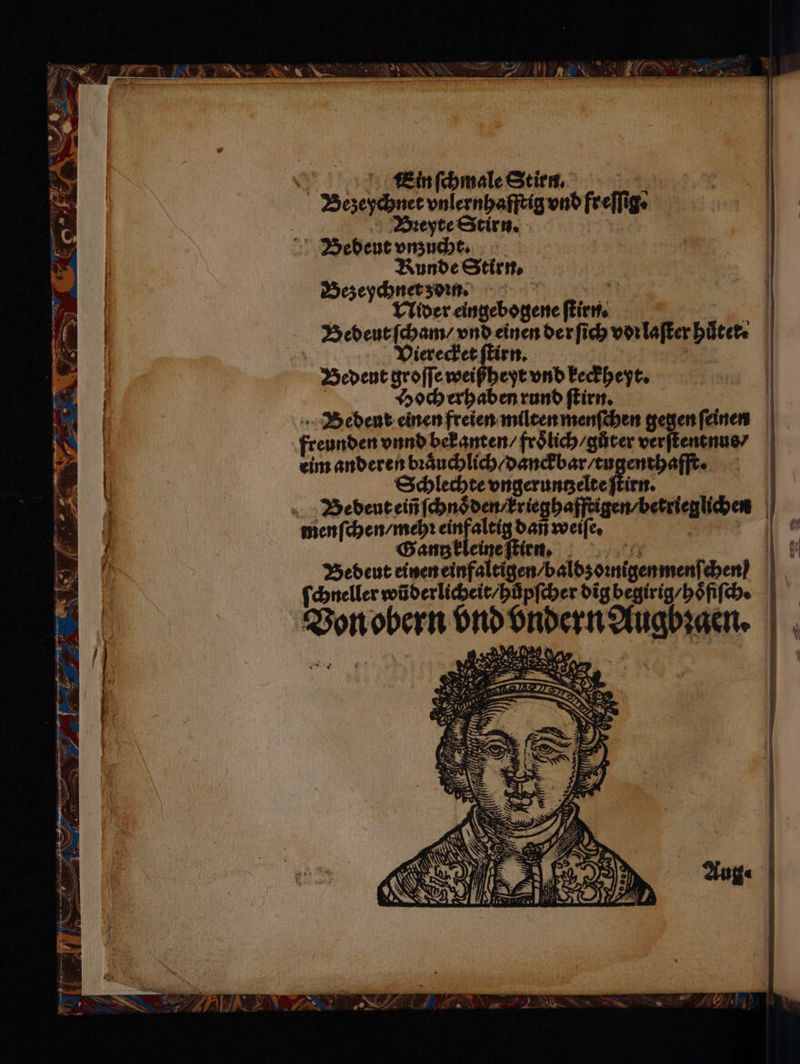 Ein ſchmale Stirn.
Bezeychnet vnlernhafftig vnd freſſig.
Breyte Stirn.
Bedeut vnzucht.
Runde Stirn.
Bezeychnet zorn.
Nider eingebogene ſtirn.
Bedeut ſcham/ vnd einen der ſich vor laſter huͤtet.
Vierecket ſtirn.
Bedeut groſſe weißheyt vnd keckheyt.
Hoch erhaben rund ſtirn.
Bedeut einen freien milten menſchen gegen ſeinen
freunden vnnd bekanten/ froͤlich/guͤter verſtentnus/
eim anderen braͤuchlich/danckbar/tugenthafft.
Schlechte vngeruntzelte ſtirn.
Bedeut eiñ ſchnoͤden/krieghafftigen/betrieglichen
menſchen/mehr einfaltig dañ weiſe.
Gantz kleine ſtirn.
Bedeut einen einfaltigen/baldzornigen menſchen/
ſchneller wũderlicheit/huͤpſcher dĩg begirig/hoͤfiſch.
Von obern vnd vndern Augbraen.
Aug-